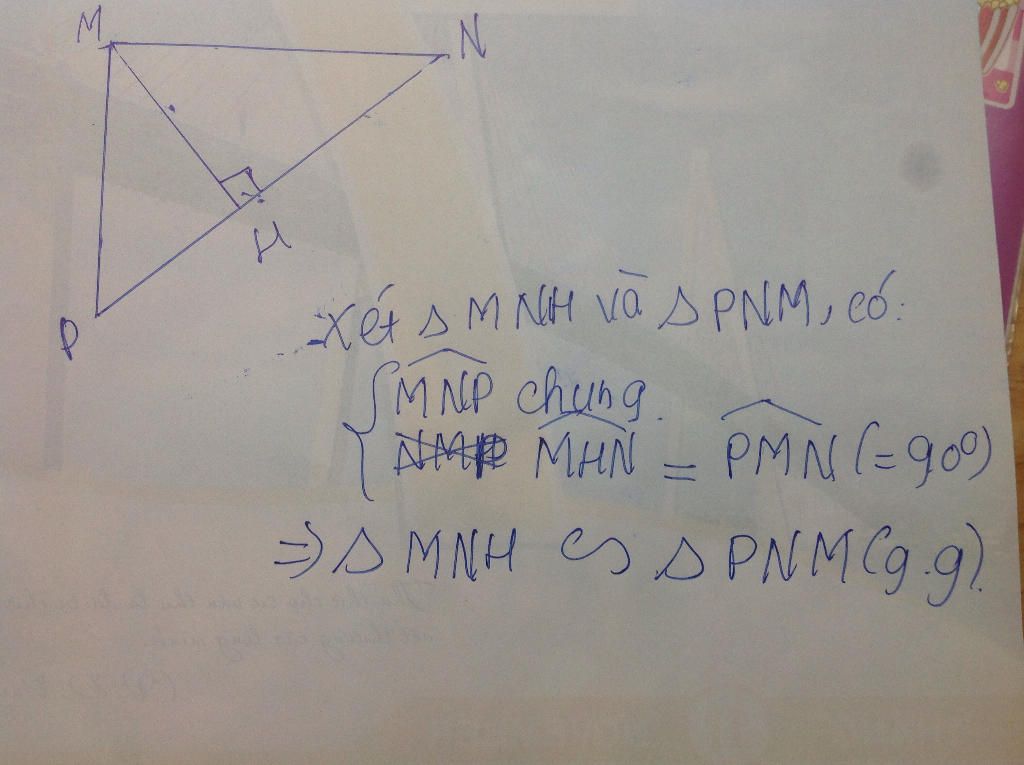 M
N
H
P
Xét Δ MNH và Δ PNM, có:
{ \widehat{MNP} chung.
\widehat{MHN} = \widehat{PMN} (= 90⁰)
=> Δ MNH ∽ Δ PNM (g.g).